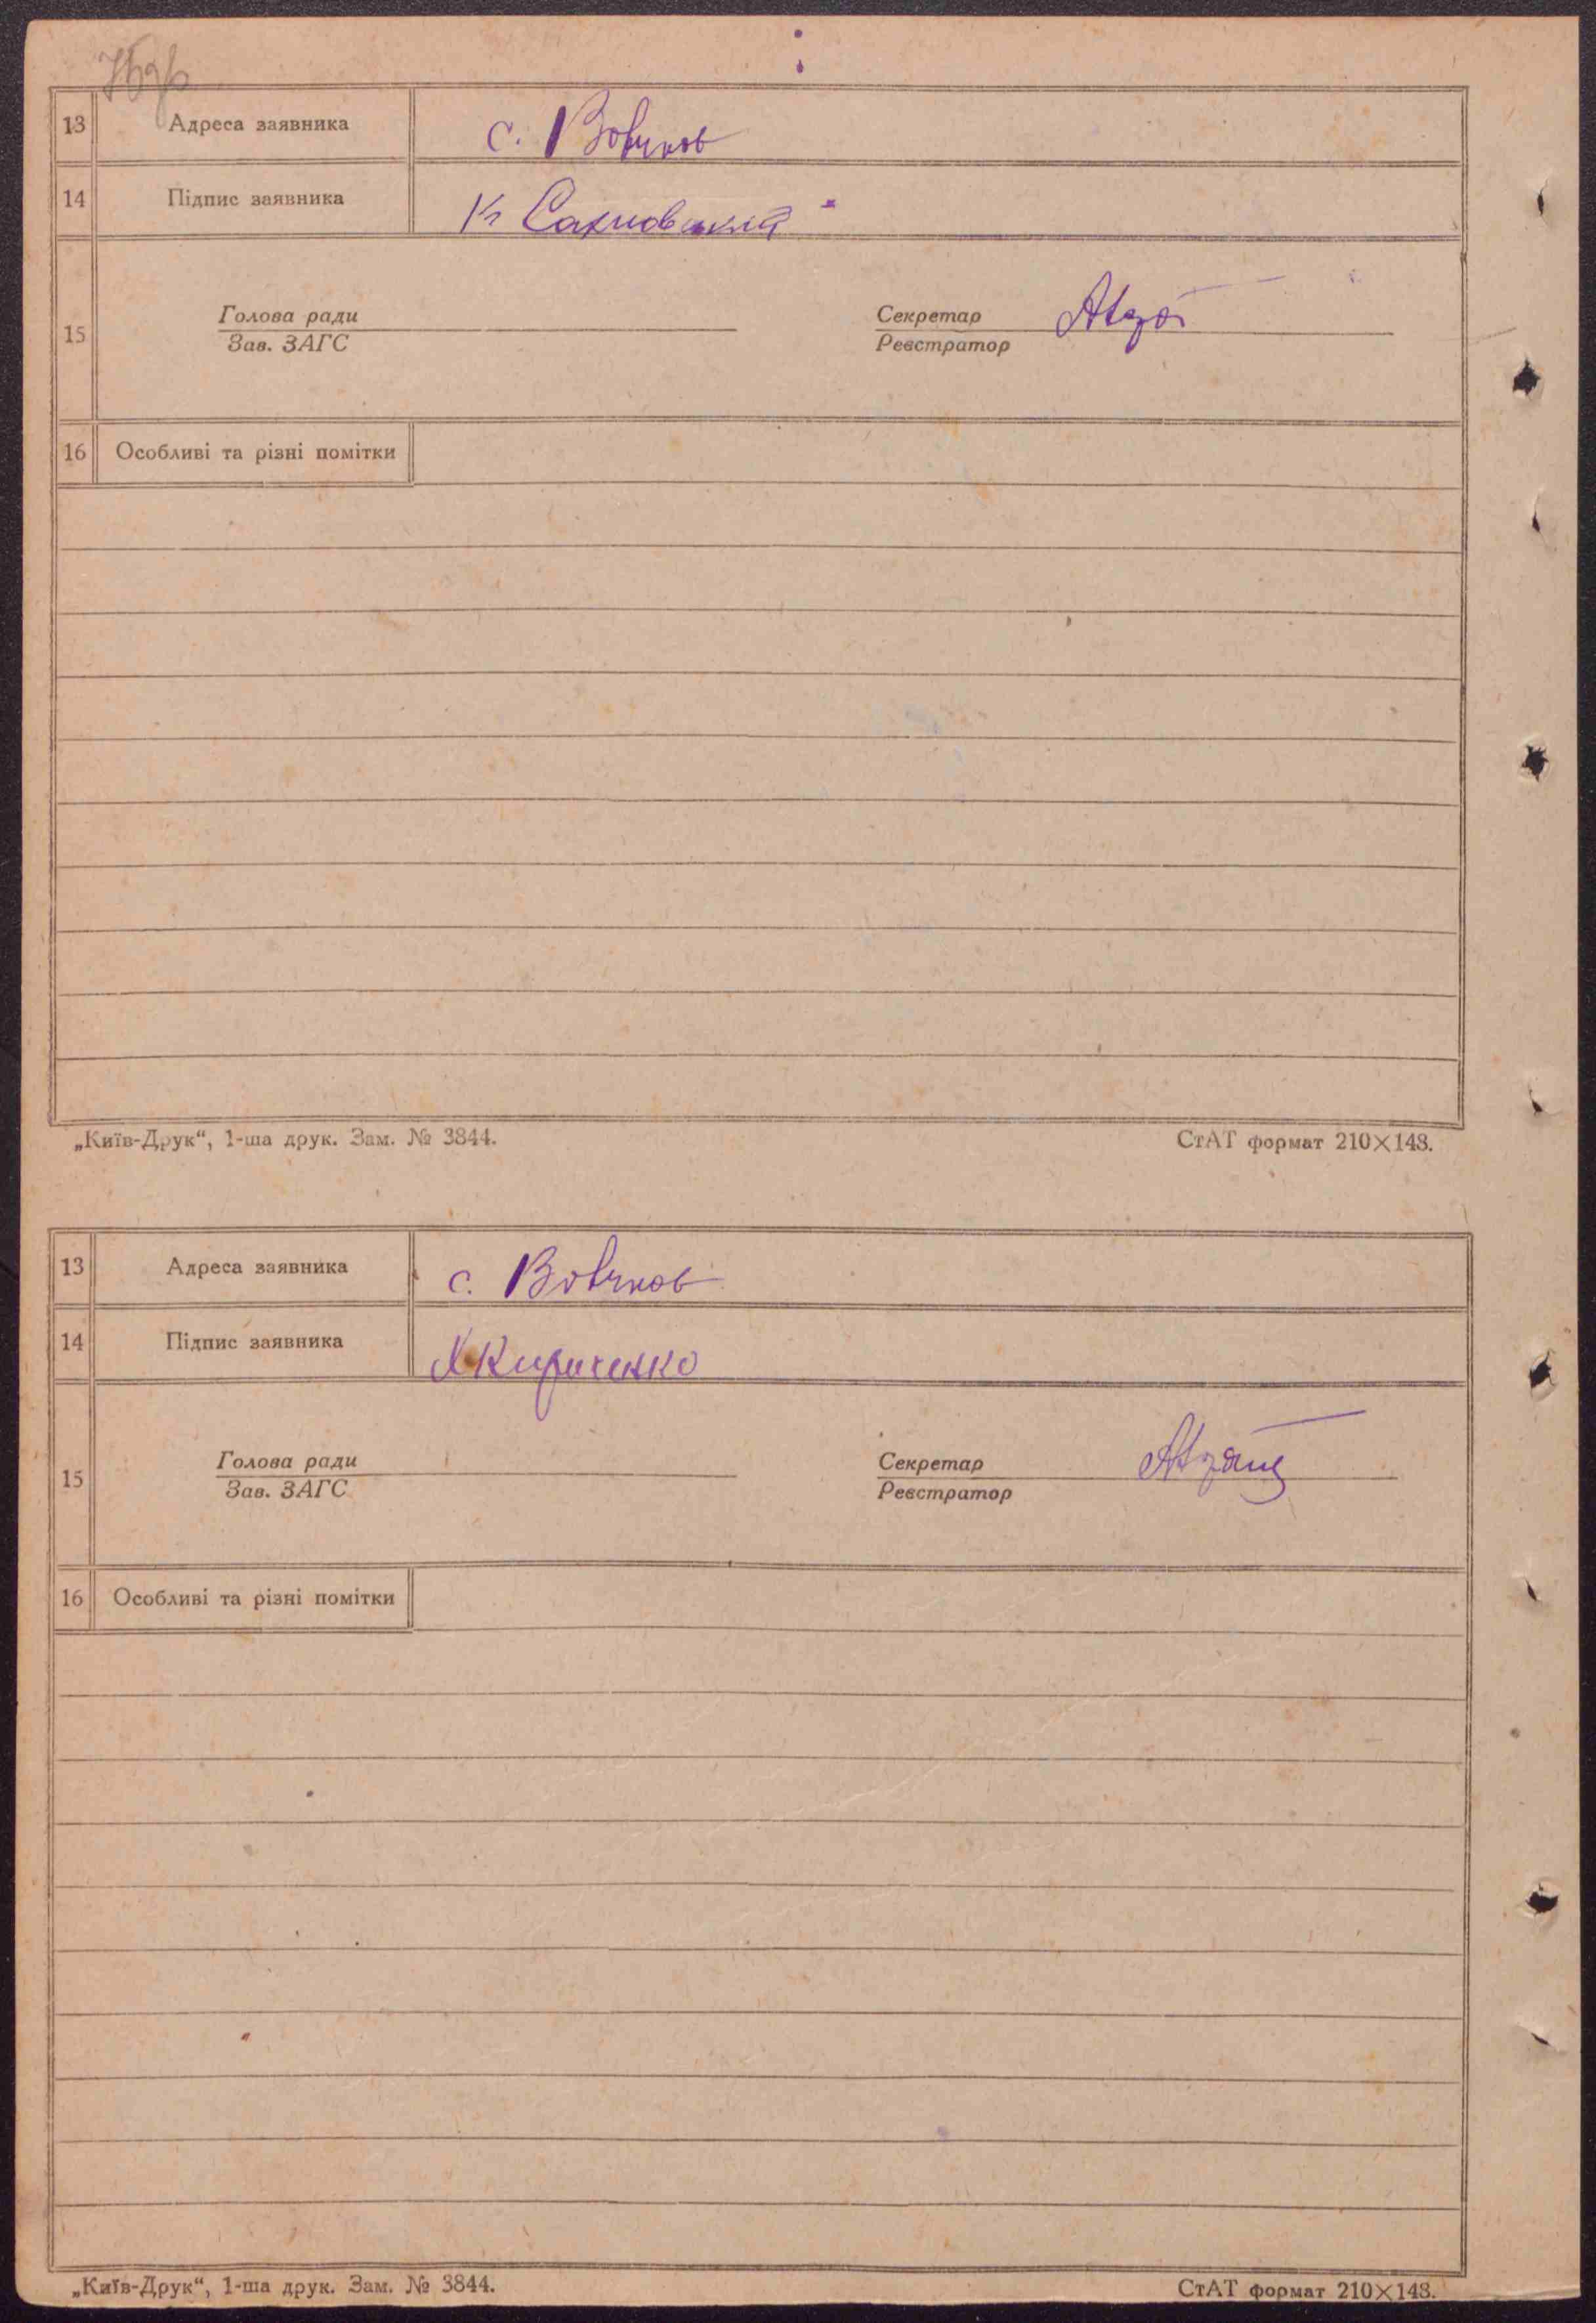 13 Адреса заявника с. Вовчков
14 Підпис заявника К Сахновський
15 Голова ради Секретар
Зав. ЗАГС Реєстратор
16 Особливі та різні помітки
„Київ-Друк“, 1-ша друк. Зам. № 3844. СтАТ формат 210×148.
13 Адреса заявника с. Вовчков
14 Підпис заявника Х Кириченко
15 Голова ради Секретар
Зав. ЗАГС Реєстратор
16 Особливі та різні помітки
„Київ-Друк“, 1-ша друк. Зам. № 3844. СтАТ формат 210×148.